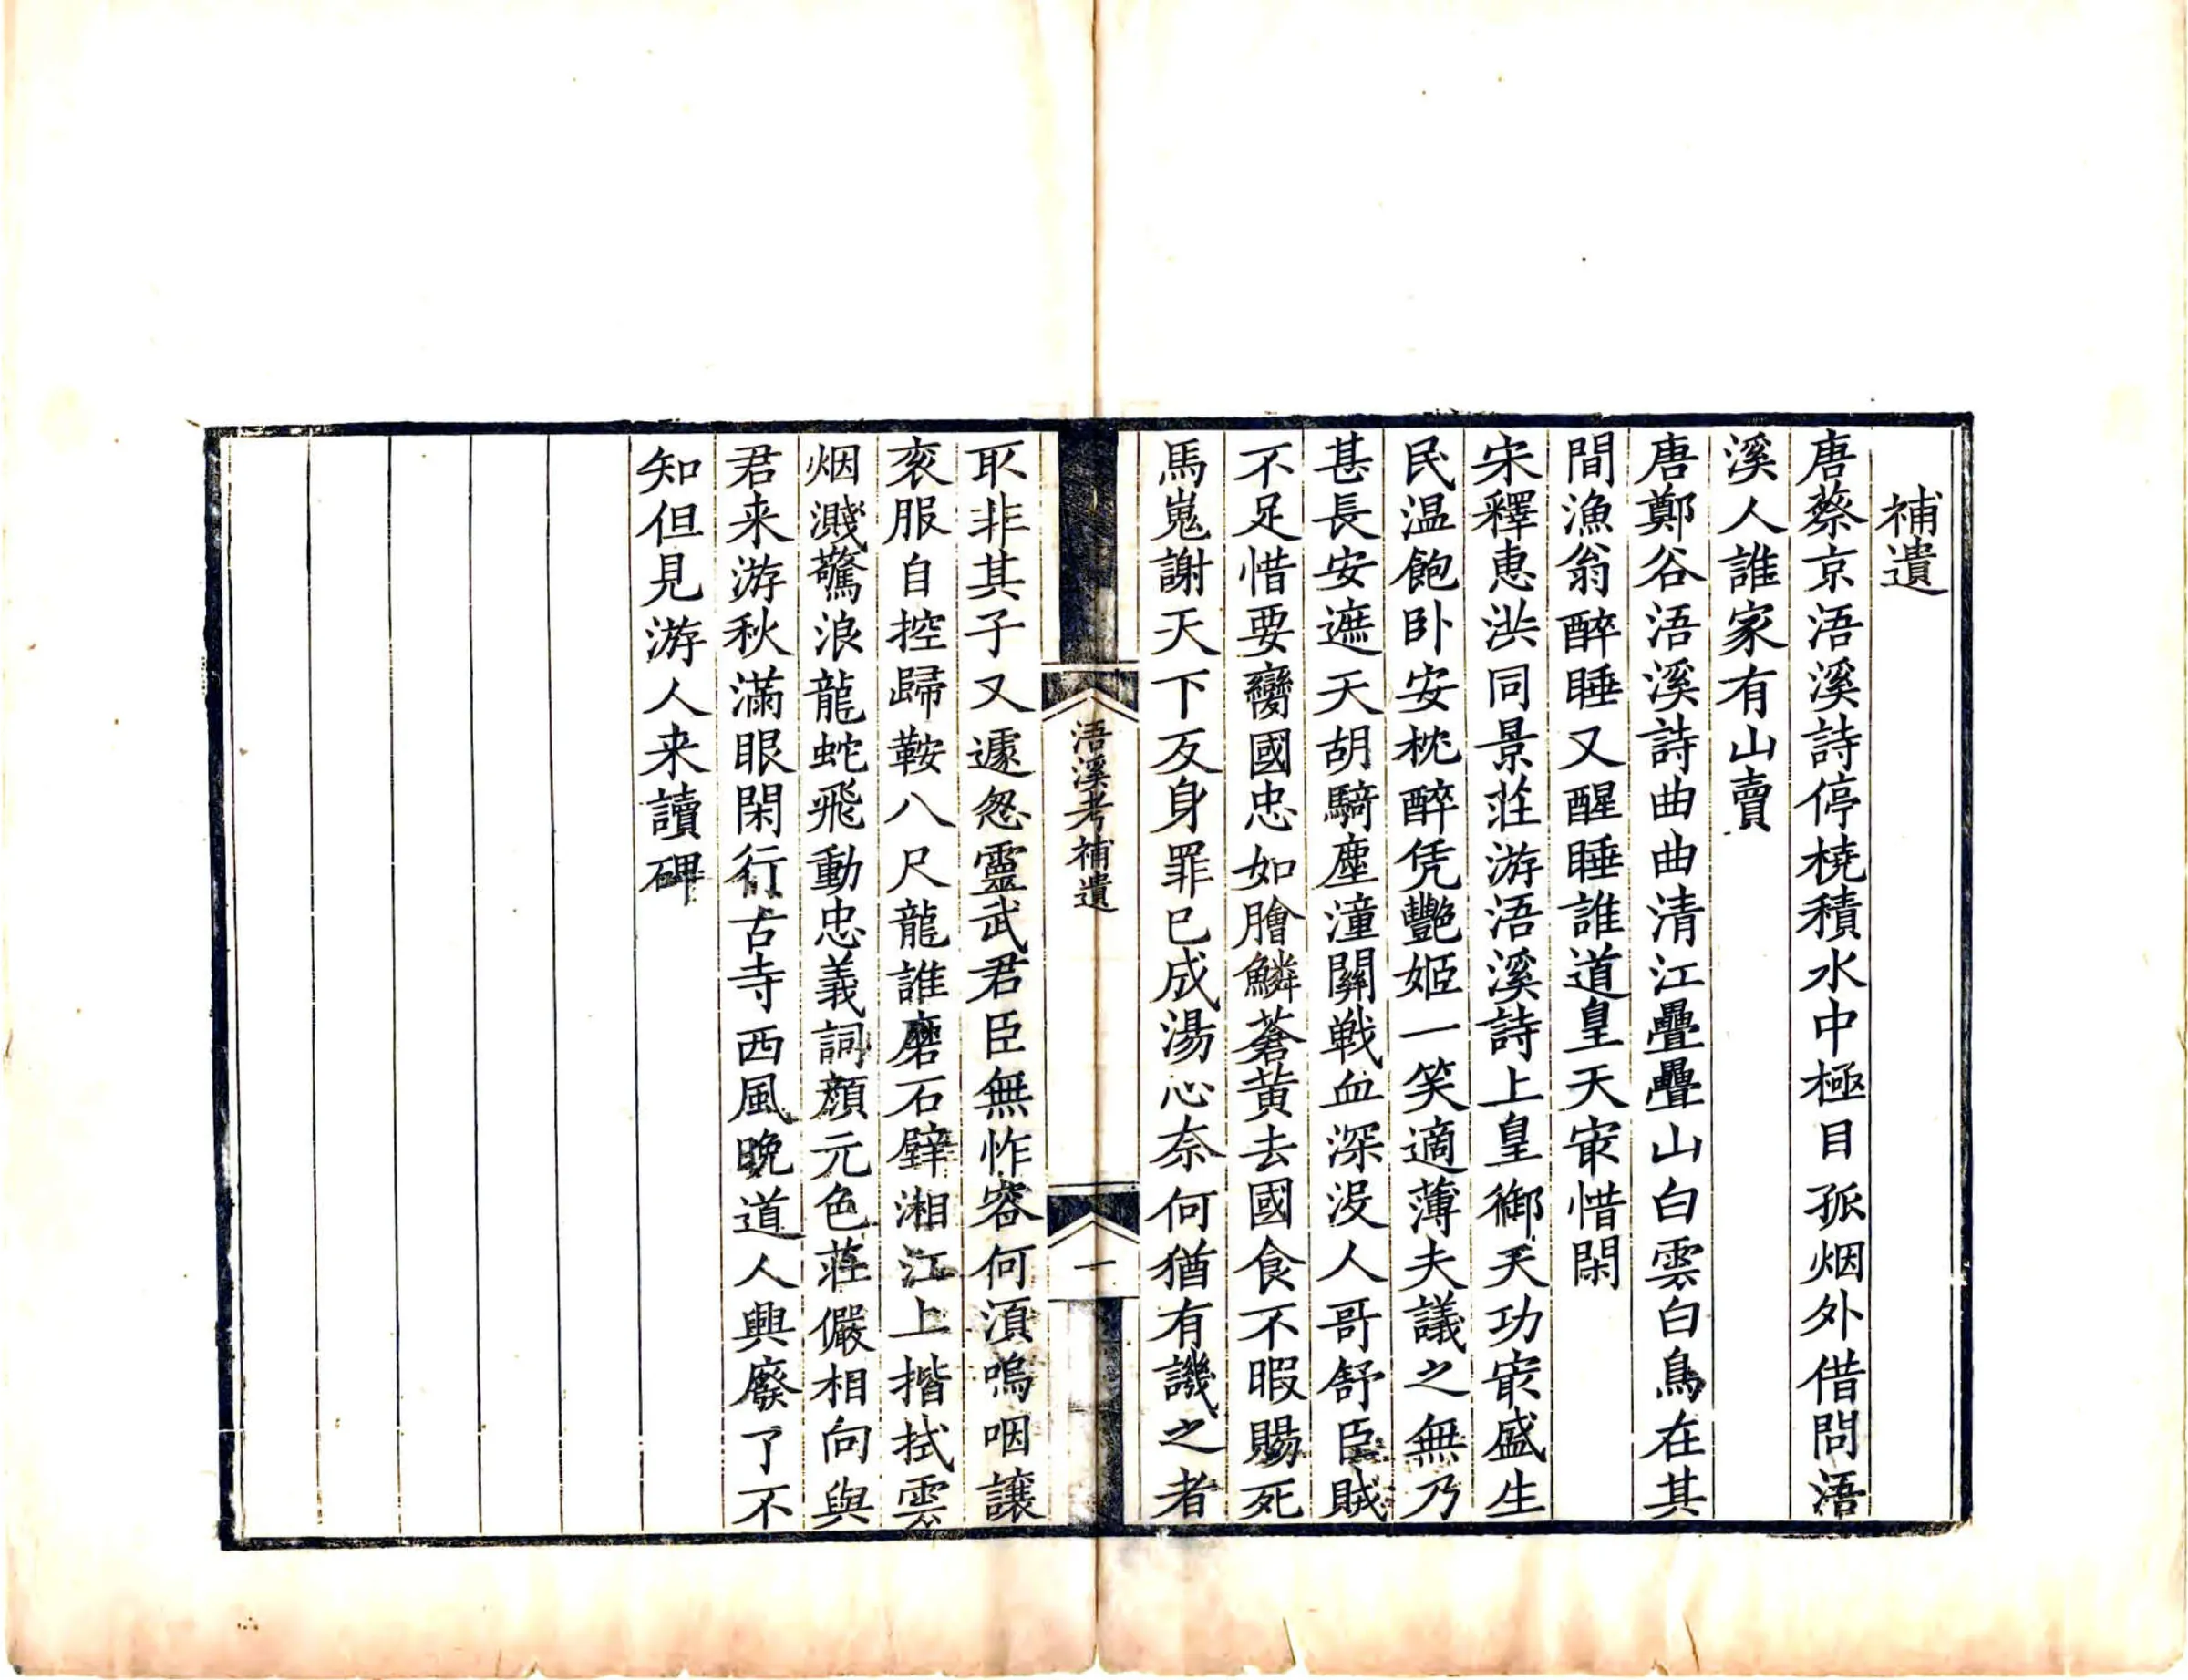 補遺
唐蔡京浯溪詩停橈積水中極目孤烟外借問浯
溪人誰家有山賣
唐鄭谷浯溪詩曲曲清江疊疊山白雲白鳥在其
間漁翁醉睡又醒睡誰道皇天㝡惜閑
宋釋惠洪同景莊游浯溪詩上皇御天功㝡盛生
民温飽卧安枕醉凭艷姬一笑適薄夫議之無乃
甚長安遮天胡騎塵潼關戰血深没人哥舒臣賊
不足惜要臠國忠如膾鱗蒼黄去國食不暇賜死
馬嵬謝天下反身罪已成湯心奈何猶有譏之者
浯溪考補遺
一
取非其子又遽怱靈武君臣無怍容何湏嗚咽讓
衮服自控歸鞍八尺龍誰磨石壁湘江上揩拭雲
烟濺驚浪龍蛇飛動忠義詞顔元色莊儼相向與
君来游秋滿眼閑行古寺西風晚道人興廢了不
知但見游人来讀碑